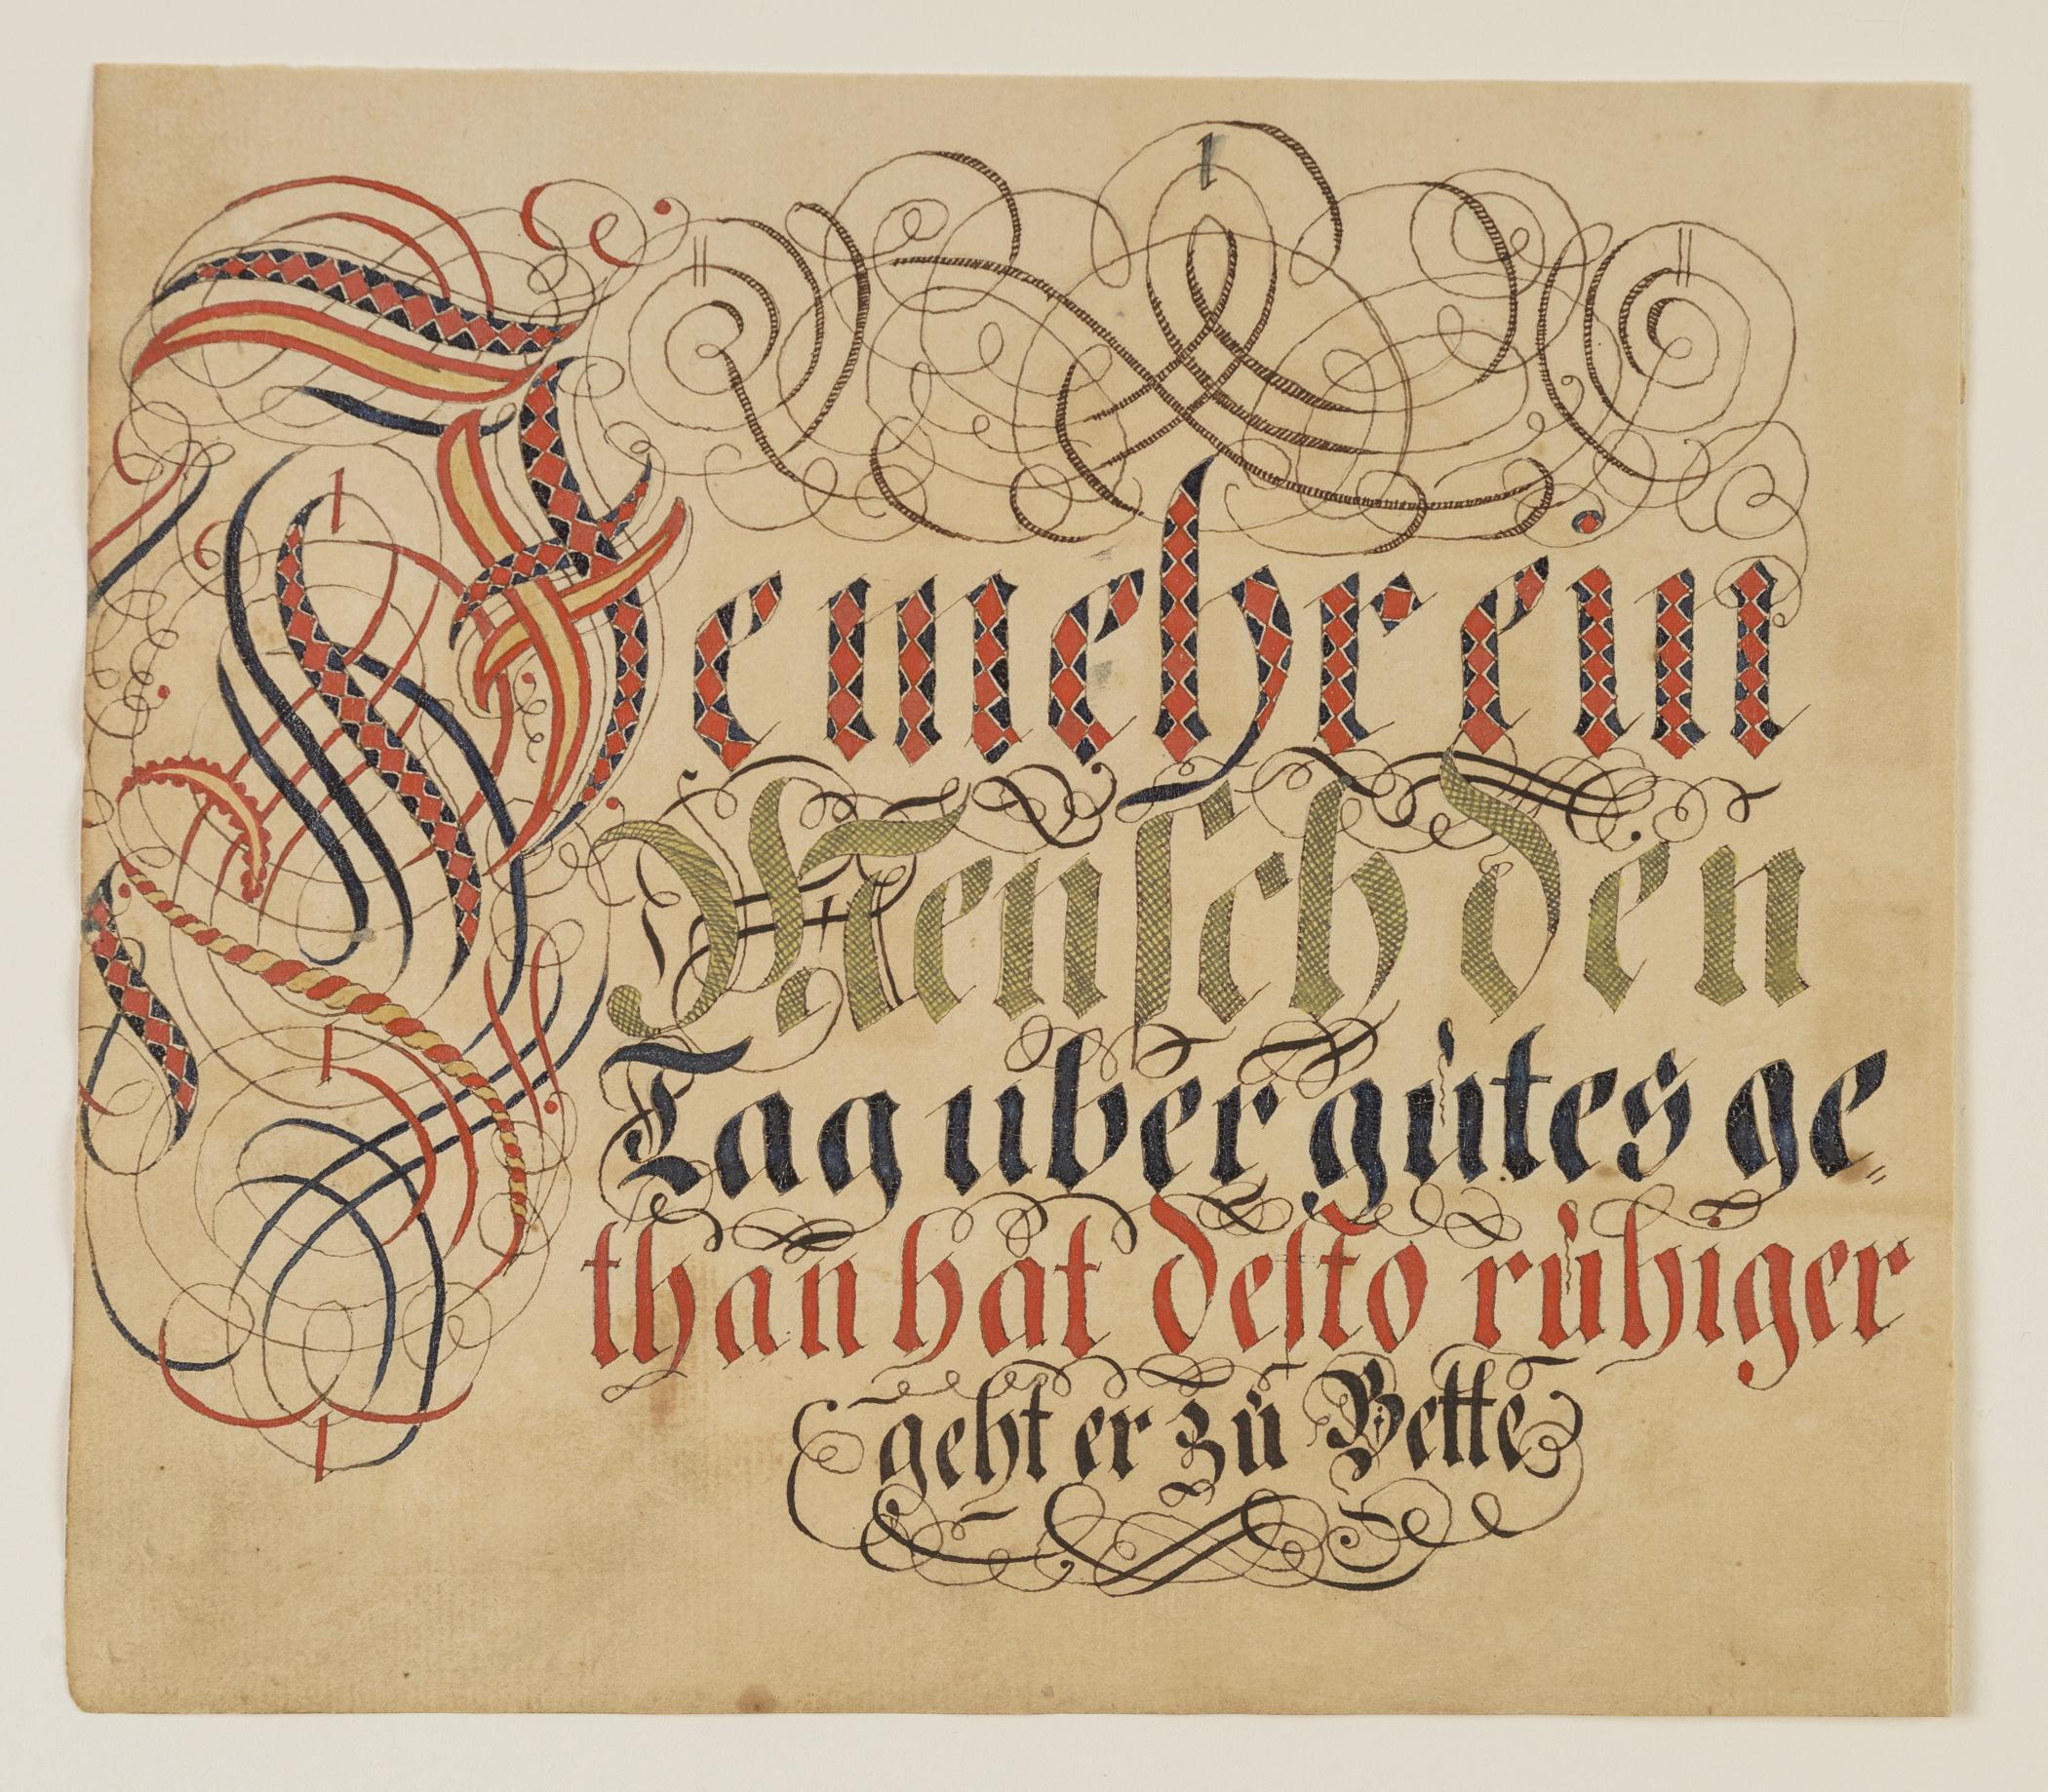 Je mehr ein
Mensch den
Tag uber gutes ge=
than hat desto ruhiger
geht er zu Bette